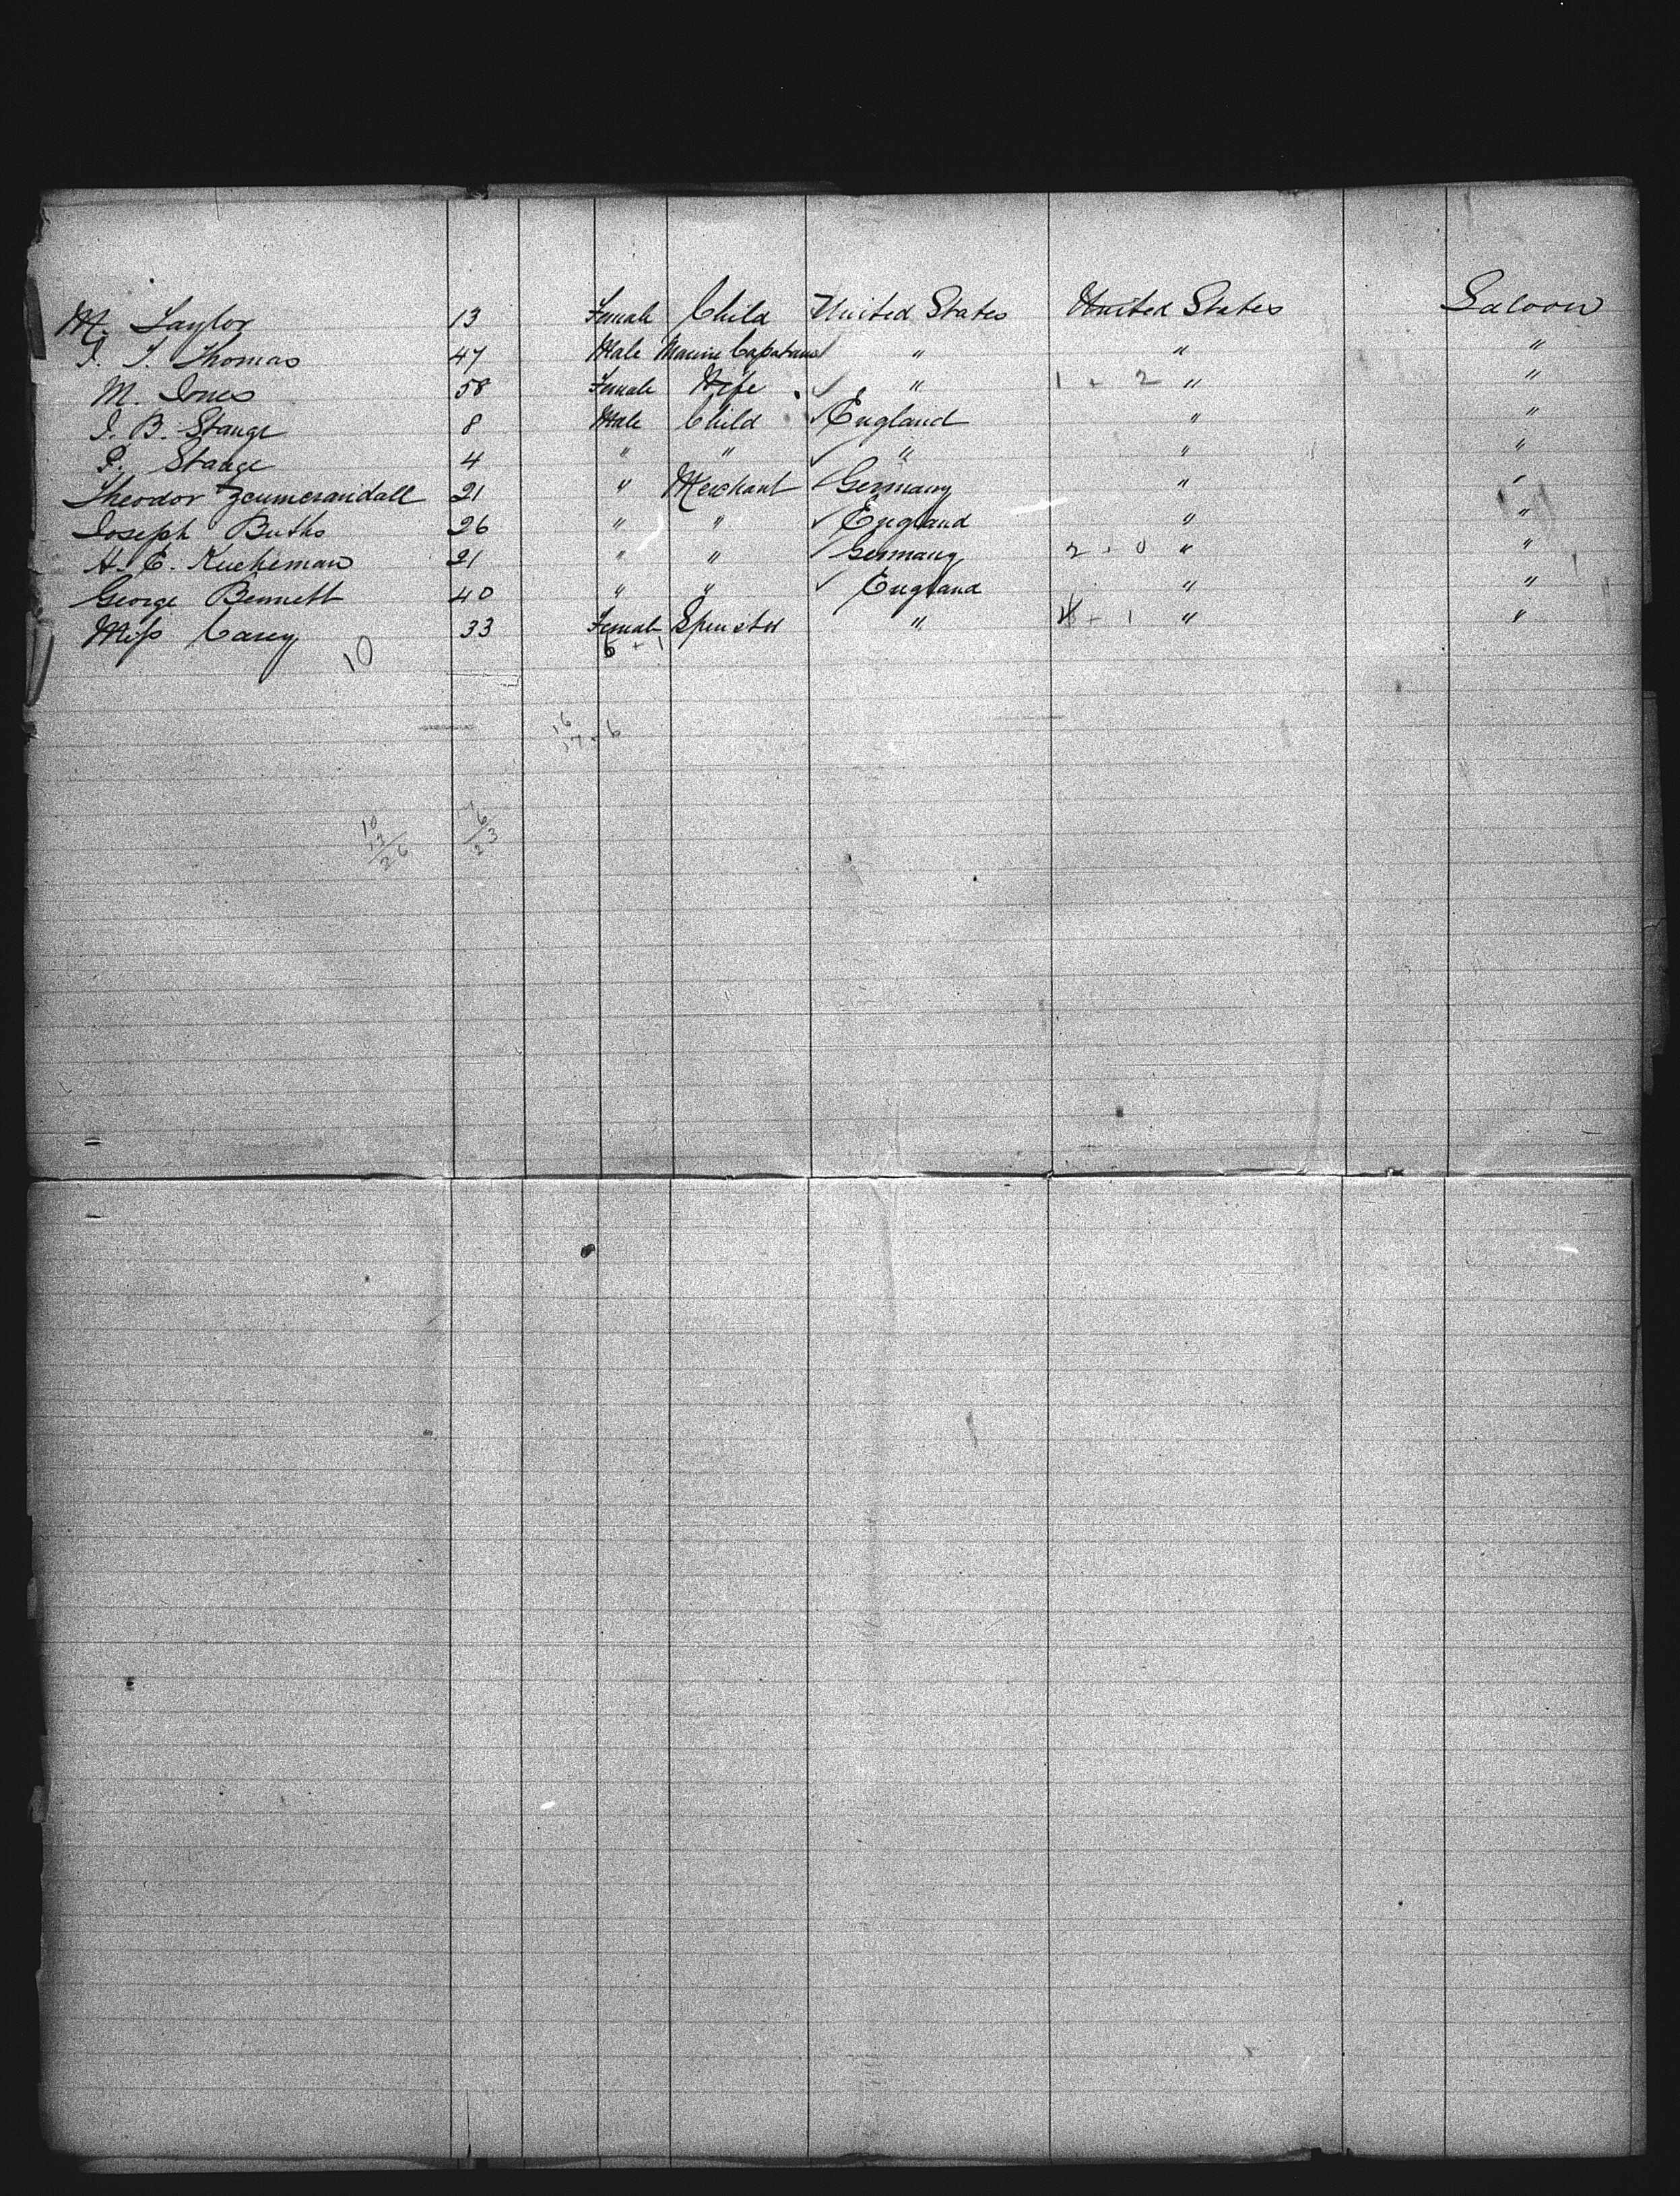 M. Taylor 13 Female Child United States United States Saloon
I. T. Thomas 47 Male Marine Capatans " " "
M. Jones 58 Female Wife " 1 + 2 " "
I. B. Stange 8 Male Child England " "
P. Stange 4 " " " " "
Theodor 21 " Merchant Germany " "
Joseph Buths 26 " " England " "
H. E. Kucheman 21 " " Germany 2 + 0 " "
George Bennett 40 " " England " "
Miss Carey 33 Female Spinster " + 1 " "
10 6 + 1
16
17 + 6
10 7
13 6
26 23